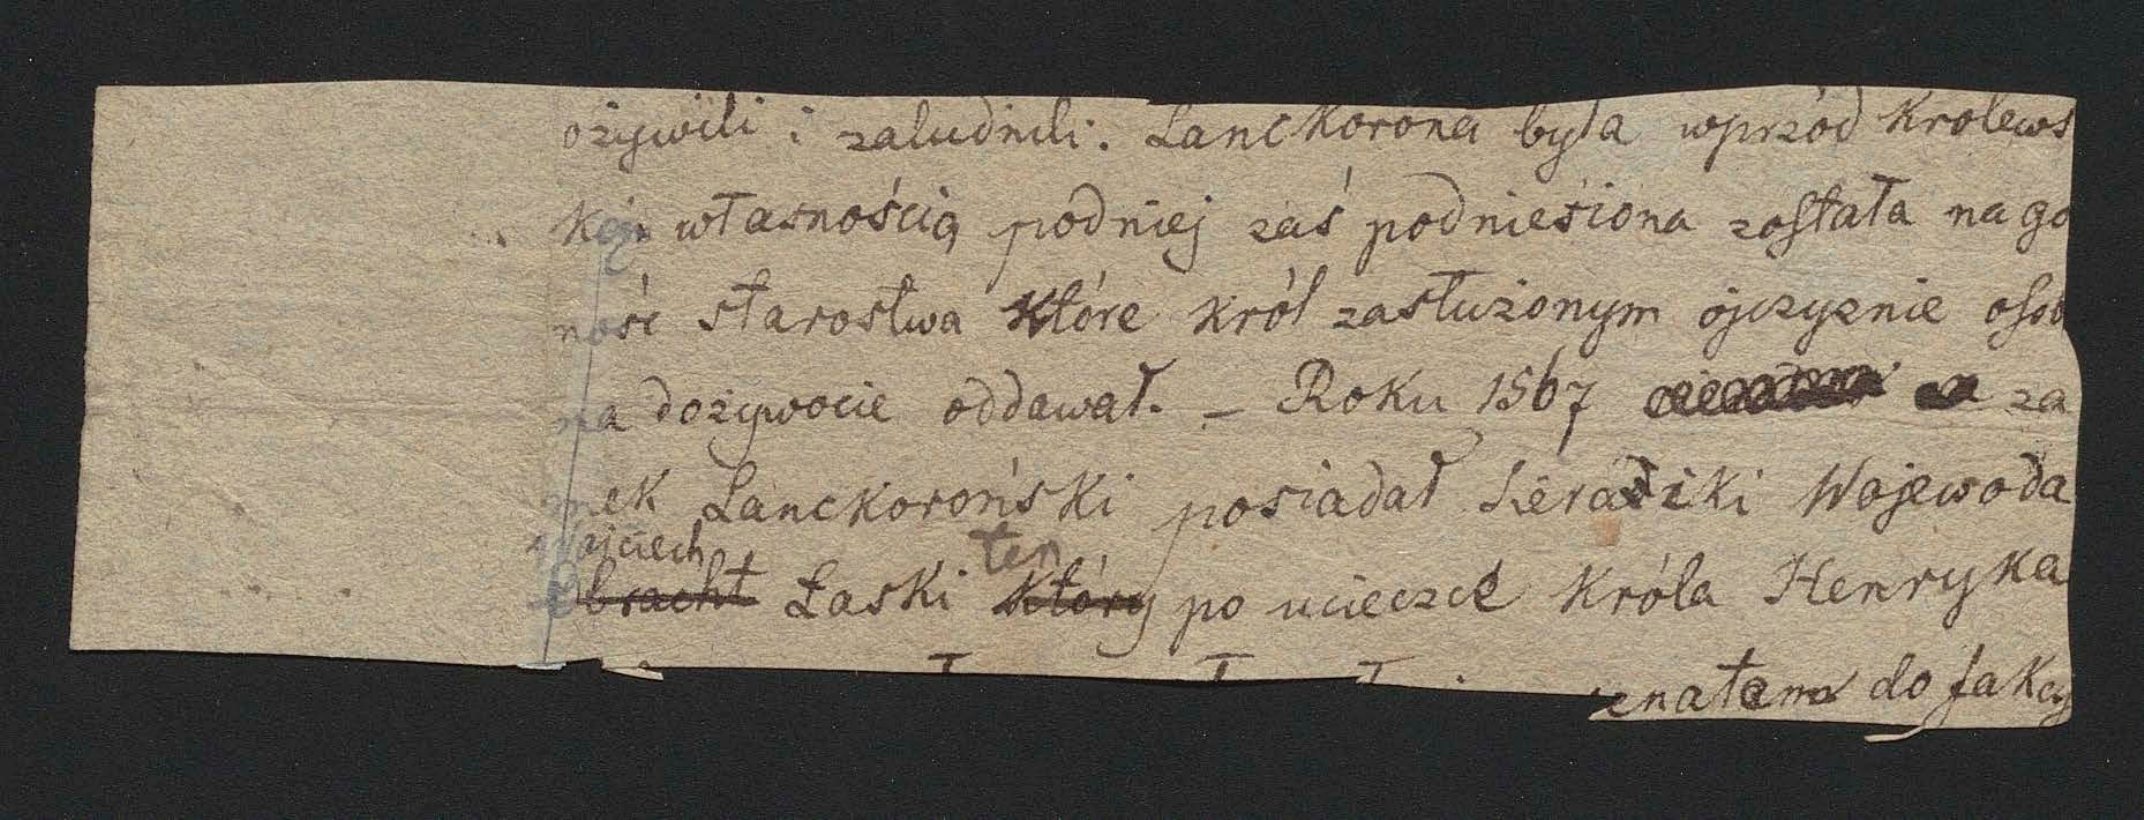 ożywili i zaludnili. Lanckorona była wprzód Królews
ką własnością podniej zaś podnieśiona została na go
ność starostwa które król zasłużonym ojczyznie osob
na dożywocie oddawał. – Roku 1567 za
mek Lanckoroński posiadał Sieradzki Wojewoda
Wojciech ten
Olbracht Łaski który po ucieczce Króla Henryka
do fakcy